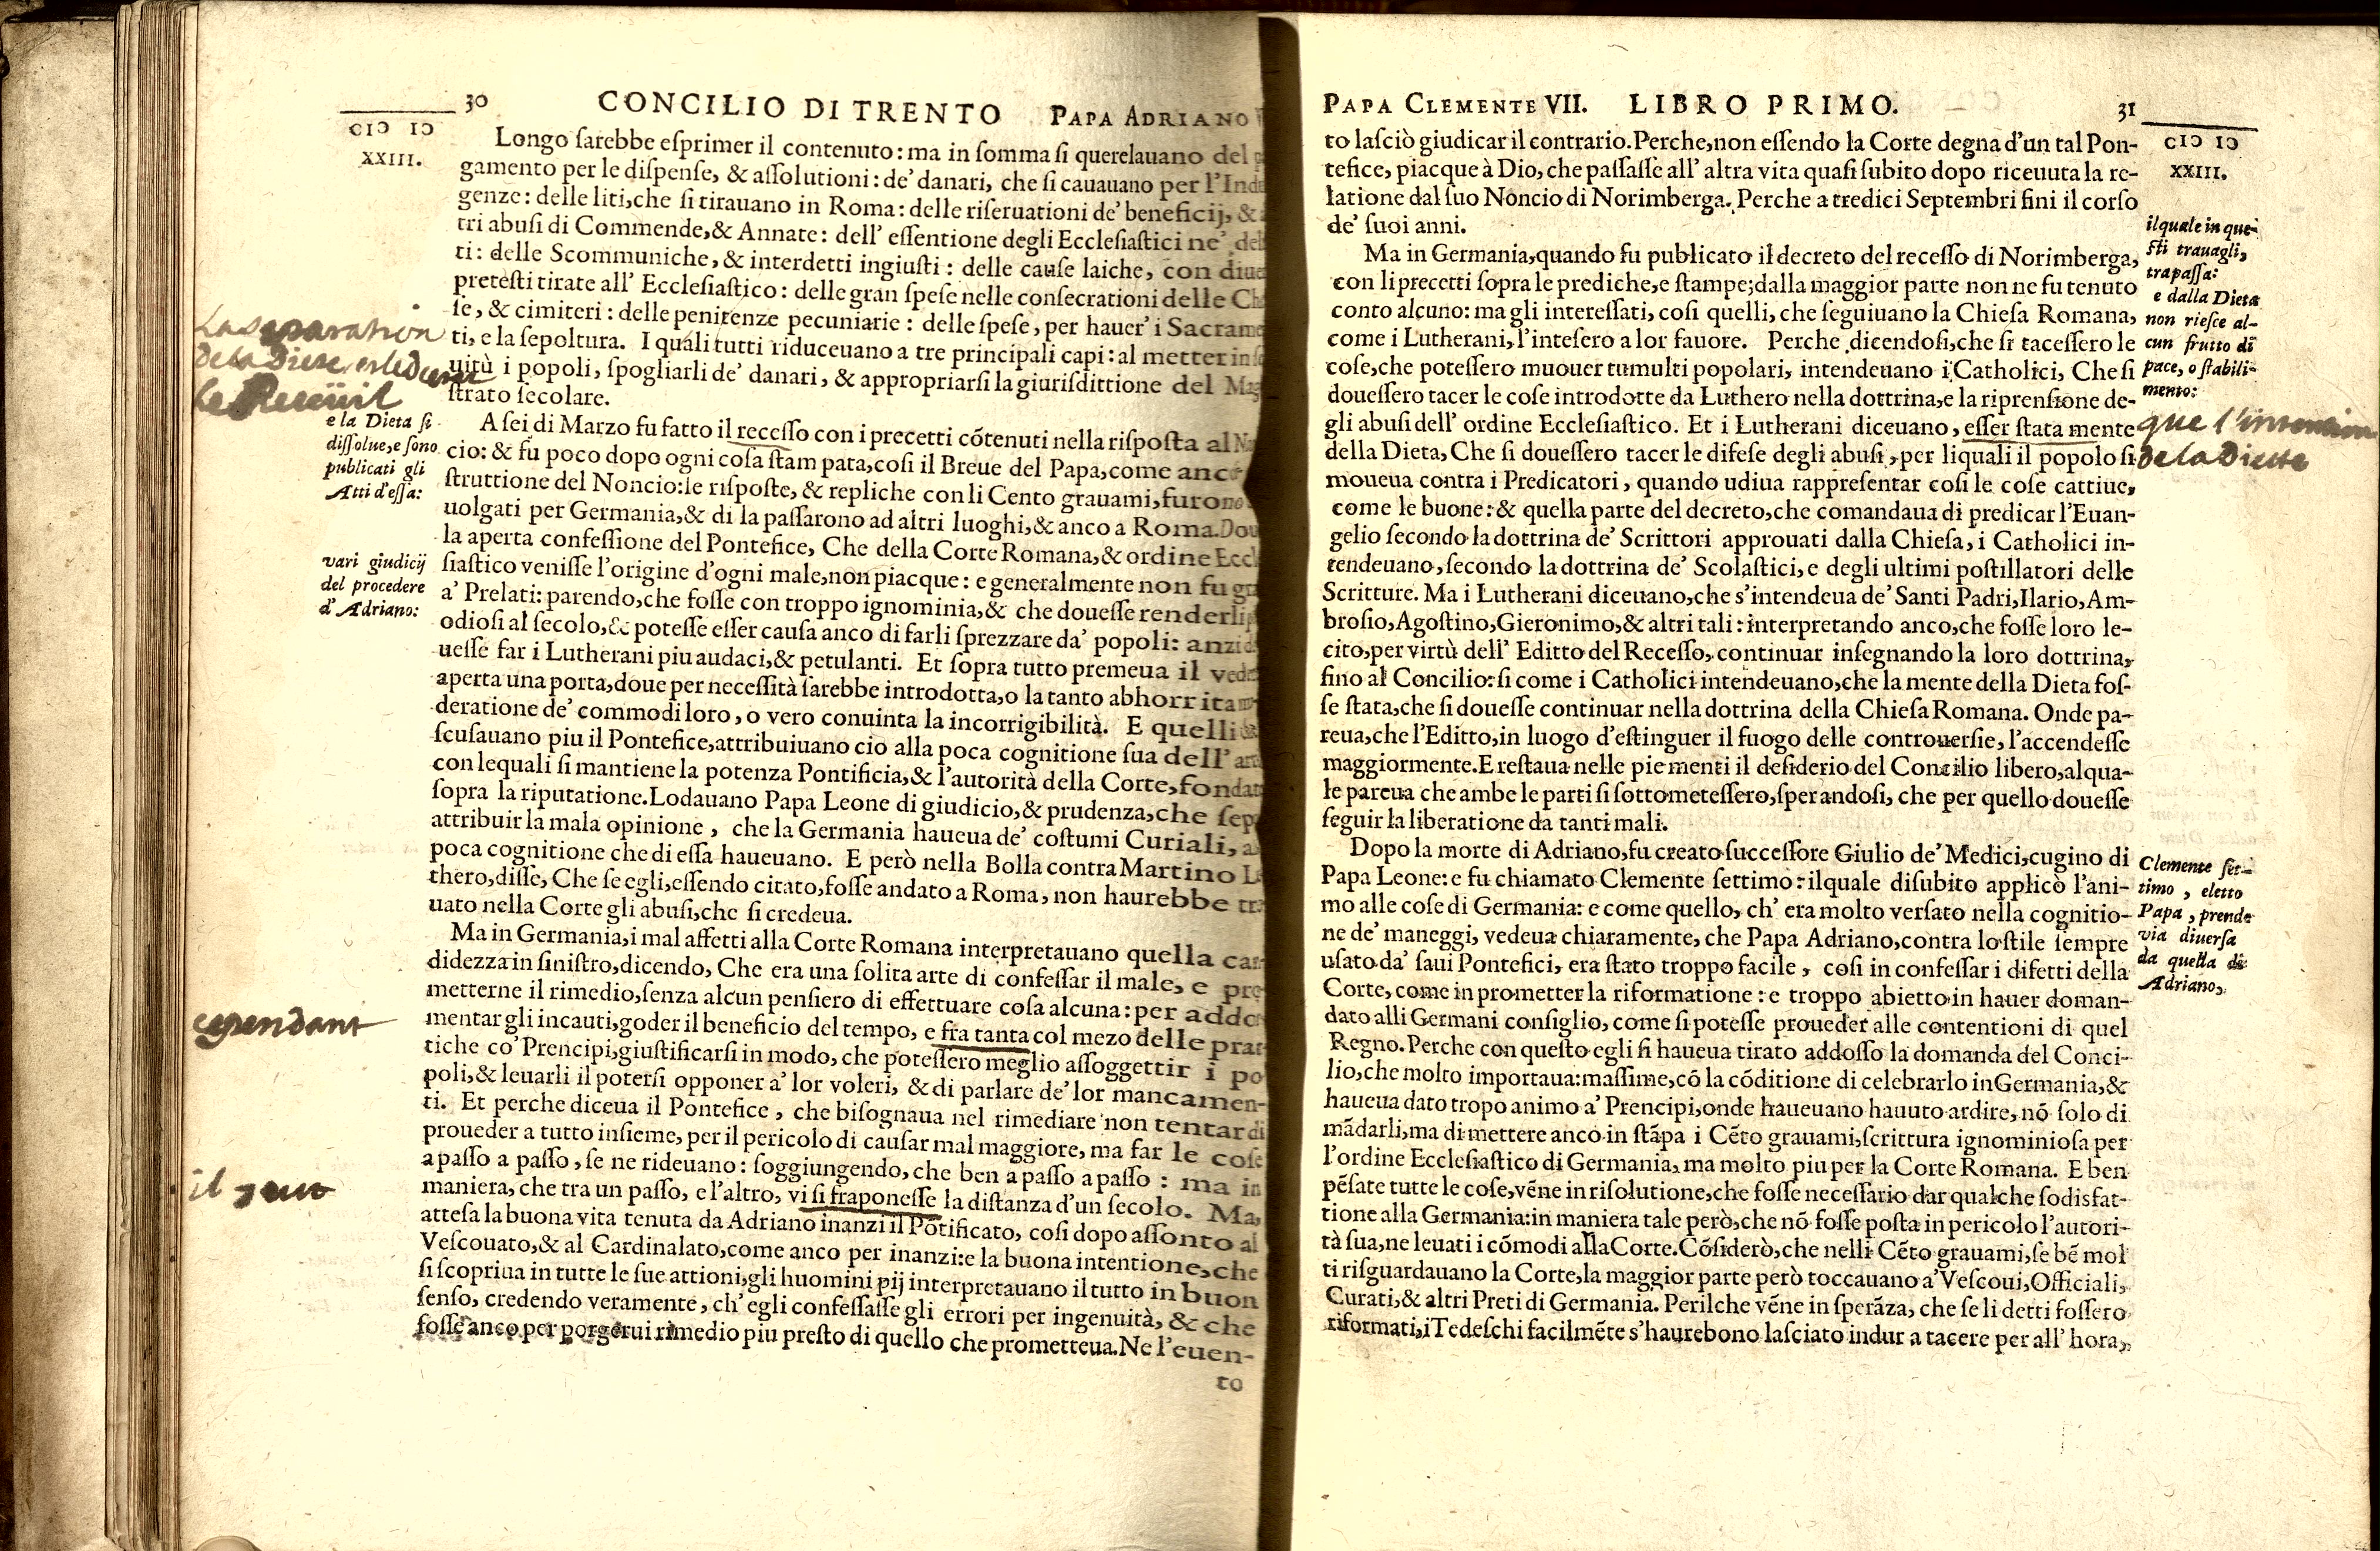 30 CONCILIO DI TRENTO PAPA ADRIANO
CIƆ IƆ
XXIII.
Longo ſarebbe eſprimer il contenuto: ma in ſomma ſi querelauano del
gamento per le diſpenſe, & aſſolutioni: de' danari, che ſi cauauano per l'Indu
genze: delle liti,che ſi tirauano in Roma: delle riſeruationi de' beneficij, &
tri abuſi di Commende,& Annate: dell' eſſentione degli Eccleſiaſtici ne' del
ti: delle Scommuniche, & interdetti ingiuſti: delle cauſe laiche, con diue
preteſti tirate all' Eccleſiaſtico: delle gran ſpeſe nelle conſecrationi delle Ch
ſe, & cimiteri: delle penitenze pecuniarie: delle ſpeſe, per hauer' i Sacrame
ti, e la ſepoltura. I quali tutti riduceuano a tre principali capi: al metter in
uitù i popoli, ſpogliarli de' danari, & appropriarſi la giurisdittione del Mag
ſtrato ſecolare.
La separation
de la Diete,
le Recüeil
A ſei di Marzo fu fatto il receſſo con i precetti cõtenuti nella riſpoſta al N
cio: & fu poco dopo ogni coſa ſtam pata,coſi il Breue del Papa,come anc
ſtruttione del Noncio:le riſpoſte, & repliche con li Cento grauami,furono
uolgati per Germania,& di la paſſarono ad altri luoghi,& anco a Roma.Dou
la aperta confeſſione del Pontefice, Che della Corte Romana,& ordine Eccl
ſiaſtico veniſſe l'origine d'ogni male,non piacque: e generalmente non fu gra
a' Prelati: parendo,che foſſe con troppo ignominia,& che doueſſe renderli
odioſi al ſecolo,& poteſſe eſſer cauſa anco di farli ſprezzare da' popoli: anzi
ueſſe far i Lutherani piu audaci,& petulanti. Et ſopra tutto premeua il vede
aperta una porta,doue per neceſſità ſarebbe introdotta,o la tanto abhorrita
deratione de' commodi loro, o vero conuinta la incorrigibilità. E quelli
ſcuſauano piu il Pontefice,attribuiuano cio alla poca cognitione ſua dell' art
con lequali ſi mantiene la potenza Pontificia,& l'autorità della Corte,fondat
ſopra la riputatione.Lodauano Papa Leone di giudicio,& prudenza,che ſep
attribuir la mala opinione, che la Germania haueua de' coſtumi Curiali,
poca cognitione che di eſſa haueuano. E però nella Bolla contra Martino L
thero,diſſe, Che ſe egli,eſſendo citato,foſſe andato a Roma, non haurebbe tr
uato nella Corte gli abuſi,che ſi credeua.
e la Dieta ſi
diſſolue,e ſono
publicati gli
Atti d'eſſa:
vari giudicij
del procedere
d'Adriano:
Ma in Germania,i mal affetti alla Corte Romana interpretauano quella can
didezza in ſiniſtro,dicendo, Che era una ſolita arte di confeſſar il male, e pro
metterne il rimedio,ſenza alcun penſiero di effettuare coſa alcuna: per addor
mentar gli incauti,goder il beneficio del tempo, e fra tanta col mezo delle prat
tiche co' Prencipi,giuſtificarſi in modo, che poteſſero meglio aſſoggettir i po
poli,& leuarli il poterſi opponer a' lor voleri, & di parlare de' lor mancamen-
ti. Et perche diceua il Pontefice, che biſognaua nel rimediare non tentar di
proueder a tutto inſieme, per il pericolo di cauſar mal maggiore, ma far le coſe
a paſſo a paſſo, ſe ne rideuano: ſoggiungendo, che ben a paſſo a paſſo: ma in
maniera, che tra un paſſo, e l'altro, vi ſi fraponeſſe la diſtanza d'un ſecolo. Ma,
atteſa la buona vita tenuta da Adriano inanzi il Põtificato, coſi dopo aſſonto al
Veſcouato,& al Cardinalato,come anco per inanzi:e la buona intentione,che
ſi ſcopriua in tutte le ſue attioni,gli huomini pij interpretauano il tutto in buon
ſenſo, credendo veramente, ch'egli confeſſaſſe gli errori per ingenuità, & che
foſſe anco per porgerui rimedio piu preſto di quello che prometteua.Ne l'euen-
to
cependant
PAPA CLEMENTE VII. LIBRO PRIMO. 31
CIƆ IƆ
XXIII.
to laſciò giudicar il contrario.Perche,non eſſendo la Corte degna d'un tal Pon-
tefice, piacque à Dio, che paſſaſſe all' altra vita quaſi ſubito dopo riceuuta la re-
latione dal ſuo Noncio di Norimberga. Perche a tredici Septembri fini il corſo
de' ſuoi anni.
Ma in Germania,quando fu publicato il decreto del receſſo di Norimberga,
con li precetti ſopra le prediche,e ſtampe;dalla maggior parte non ne fu tenuto
conto alcuno: ma gli intereſſati, coſi quelli, che ſeguiuano la Chieſa Romana,
come i Lutherani, l'inteſero a lor fauore. Perche dicendoſi,che ſi taceſſero le
coſe,che poteſſero muouer tumulti popolari, intendeuano i Catholici, Che ſi
doueſſero tacer le coſe introdotte da Luthero nella dottrina,e la riprenſione de-
gli abuſi dell' ordine Eccleſiaſtico. Et i Lutherani diceuano, eſſer ſtata mente
della Dieta, Che ſi doueſſero tacer le difeſe degli abuſi, per liquali il popolo ſi
moueua contra i Predicatori, quando udiua rappreſentar coſi le coſe cattiue,
come le buone: & quella parte del decreto,che comandaua di predicar l'Euan-
gelio ſecondo la dottrina de' Scrittori approuati dalla Chieſa, i Catholici in-
tendeuano, ſecondo la dottrina de' Scolaſtici, e degli ultimi poſtillatori delle
Scritture. Ma i Lutherani diceuano,che s'intendeua de' Santi Padri,Ilario,Am-
broſio,Agoſtino,Gieronimo,& altri tali: interpretando anco,che foſſe loro le-
cito,per virtù dell' Editto del Receſſo, continuar inſegnando la loro dottrina,
fino al Concilio: ſi come i Catholici intendeuano,che la mente della Dieta foſ-
ſe ſtata,che ſi doueſſe continuar nella dottrina della Chieſa Romana. Onde pa-
reua,che l'Editto,in luogo d'eſtinguer il fuogo delle controuerſie, l'accendeſſe
maggiormente.E reſtaua nelle pie menti il deſiderio del Concilio libero,al qua-
le pareua che ambe le parti ſi ſottometeſſero,ſperandoſi, che per quello doueſſe
ſeguir la liberatione da tanti mali.
il quale in que-
ſti trauagli,
trapaſſa:
e dalla Dieta
non rieſce al-
cun frutto di
pace, o ſtabili-
mento:
que l'intention
de la Diette
Dopo la morte di Adriano,fu creato ſucceſſore Giulio de' Medici,cugino di
Papa Leone: e fu chiamato Clemente ſettimo: ilquale diſubito applicò l'ani-
mo alle coſe di Germania: e come quello, ch' era molto verſato nella cognitio-
ne de' maneggi, vedeua chiaramente, che Papa Adriano,contra lo ſtile ſempre
uſato da' ſaui Pontefici, era ſtato troppo facile, coſi in confeſſar i difetti della
Corte, come in prometter la riformatione: e troppo abietto in hauer doman-
dato alli Germani conſiglio, come ſi poteſſe proueder alle contentioni di quel
Regno.Perche con queſto egli ſi haueua tirato addoſſo la domanda del Conci-
lio,che molto importaua:maſſime,cõ la cõditione di celebrarlo in Germania,&
haueua dato tropo animo a' Prencipi,onde haueuano hauuto ardire, nõ ſolo di
mãdarli,ma di mettere anco in ſtãpa i Cẽto grauami,ſcrittura ignominioſa per
l'ordine Eccleſiaſtico di Germania, ma molto piu per la Corte Romana. E ben
pẽſate tutte le coſe,vẽne in riſolutione,che foſſe neceſſario dar qualche ſodisfat-
tione alla Germania:in maniera tale però,che nõ foſſe poſta in pericolo l'autori-
tà ſua,ne leuati i cõmodi alla Corte.Cõſiderò, che nelli Cẽto grauami,ſe bẽ mol
ti riſguardauano la Corte,la maggior parte però toccauano a' Veſcoui,Officiali,
Curati,& altri Preti di Germania. Perilche vẽne in ſperãza, che ſe li detti foſſero
riformati,i Tedeſchi facilmẽte s'haurebono laſciato indur a tacere per all' hora,
Clemente ſet-
timo, eletto
Papa, prende
via diuerſa
da quella di
Adriano,